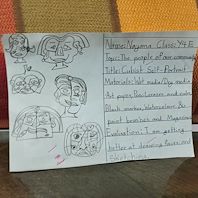 Name: Nayama Class: Y4E
Topic: The people of our community
Title: Cubist Self-Portrait
Materials: Wet media/Dry media
Art paper, Pencil, eraser and
Black marker, Watercolour,
paint brushes and Magazines
Evaluation: I am getting
better at drawing faces and
sketching.